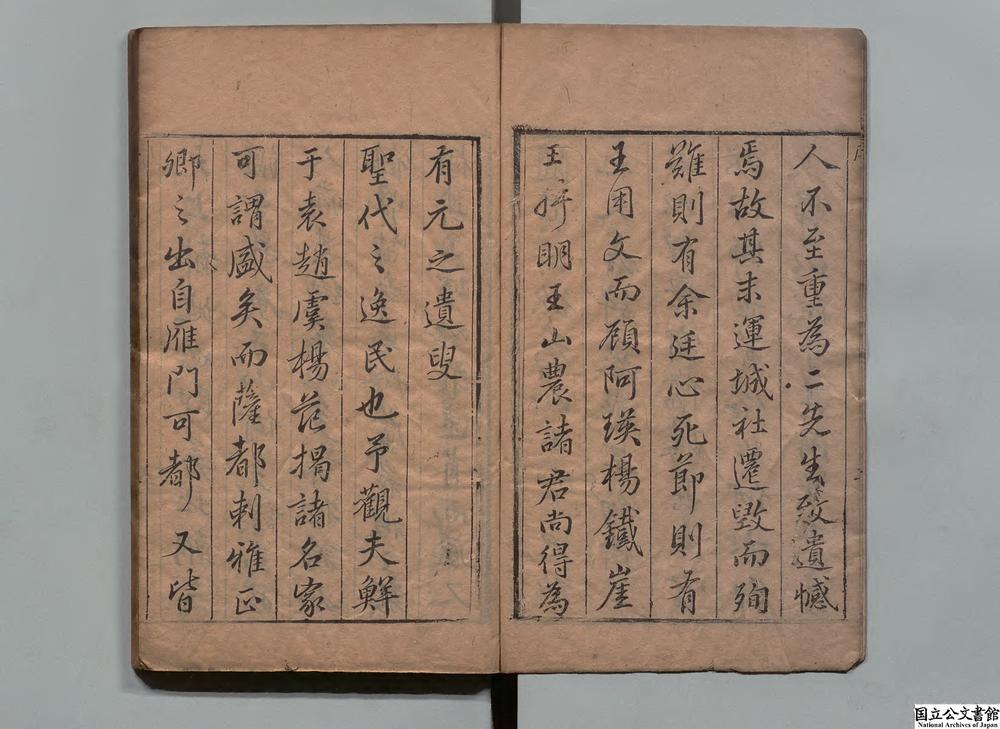 人不至重為二先生發遺憾
焉故其末運城社遷毀而殉
難則有余廷心死節則有
王用文而顧阿瑛楊鐵崖
王明王山農諸君尚得為
有元之遺叟
聖代之逸民也予觀夫鮮
于袁趙虞楊范揭諸名家
可謂盛矣而薩都剌雅正
卿之出自雁門可都又皆
国立公文書館
National Archives of Japan